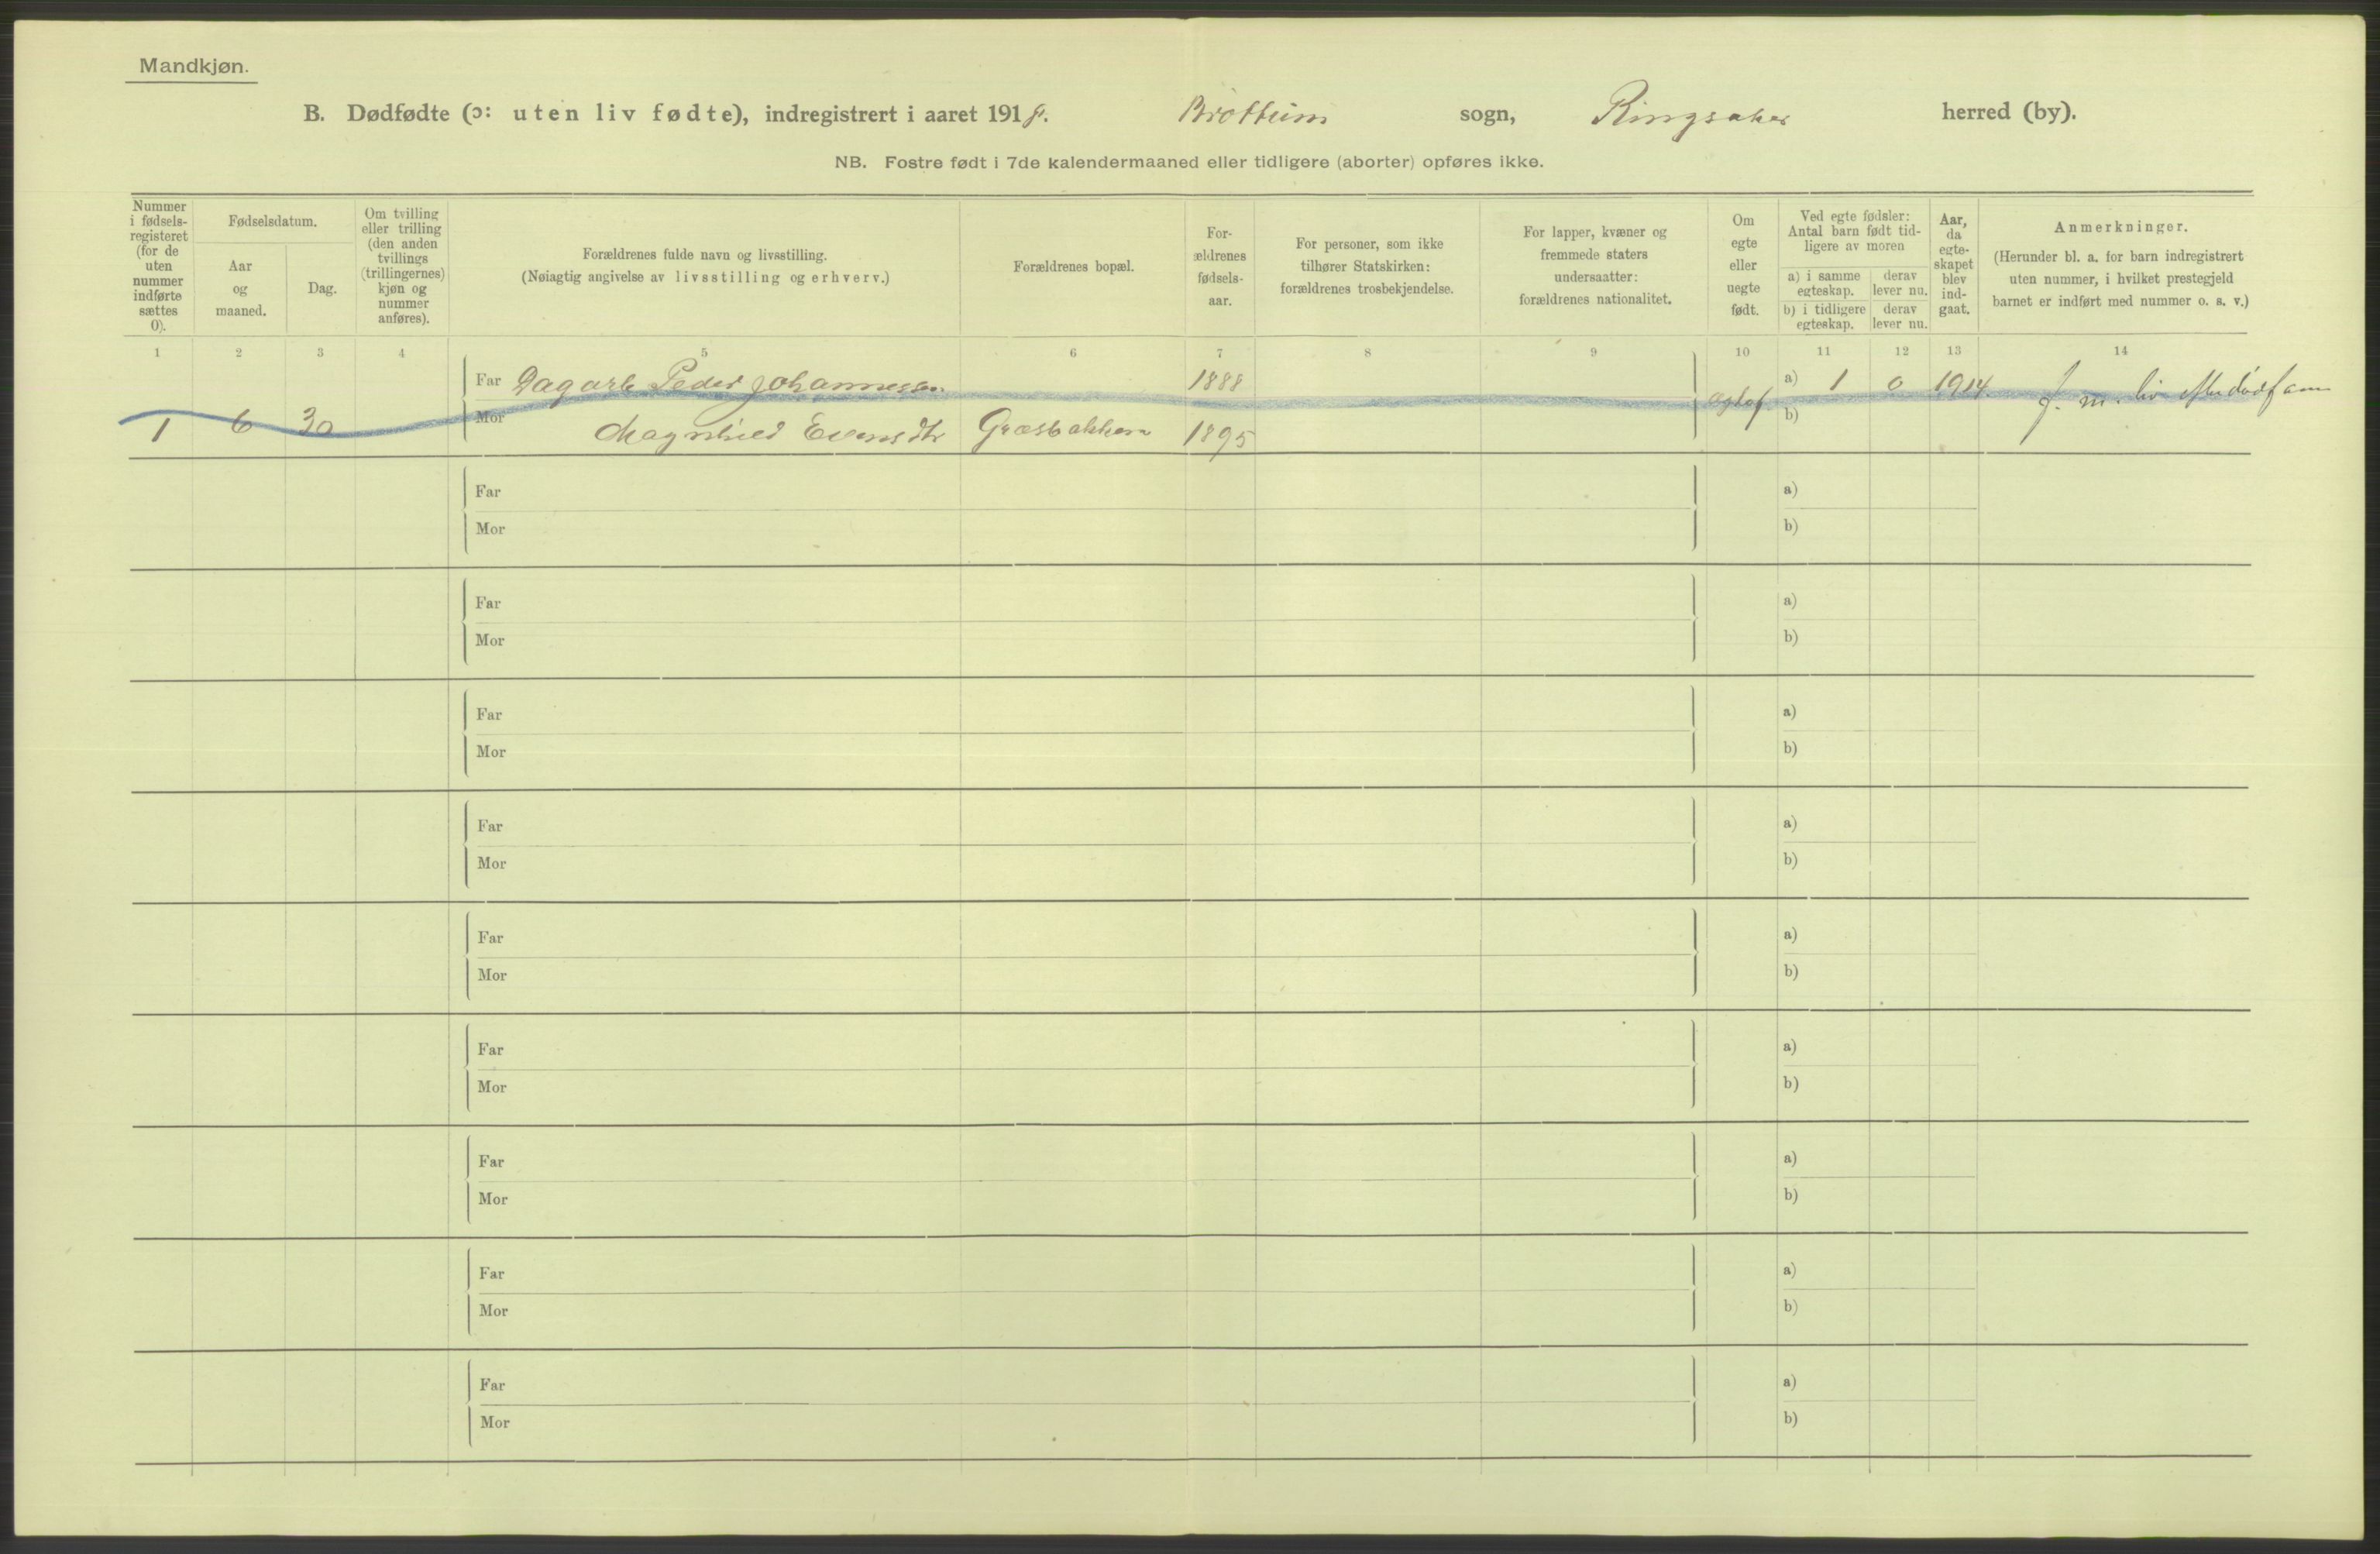 Mandkjøn.
B. Dødfødte (ɔ: uten liv fødte), indregistrert i aaret 1918. Brøttum sogn, Ringsaker herred (by).
NB. Fostre født i 7de kalendermaaned eller tidligere (aborter) opføres ikke.
Nummer
i fødsels-
registeret
(for de
uten
nummer
indførte
sættes
0).
Fødselsdatum.
Aar
og
maaned.
Dag.
Om tvilling
eller trilling
(den anden
tvillings
(trillingernes)
kjøn og
nummer
anføres).
Forældrenes fulde navn og livsstilling.
(Nøiagtig angivelse av livsstilling og erhverv.)
Forældrenes bopæl.
For-
ældrenes
fødsels-
aar.
For personer, som ikke
tilhører Statskirken:
forældrenes trosbekjendelse.
For lapper, kvæner og
fremmede staters
undersaatter:
forældrenes nationalitet.
Om
egte
eller
uegte
født.
Ved egte fødsler:
Antal barn født tid-
ligere av moren
a) i samme
egteskap.
derav
lever nu.
b) i tidligere
egteskap.
derav
lever nu.
Aar,
da
egte-
skapet
blev
ind-
gaat.
Anmerkninger.
(Herunder bl. a. for barn indregistrert
uten nummer, i hvilket prestegjeld
barnet er indført med nummer o. s. v.)
1 2 3 4 5 6 7 8 9 10 11 12 13 14
Far Dagarb Peder Johannessen 1888 a) 1 0 1914
1 6 30 Mor Magnhild Evensdtr Græsbakken 1895 b)
Far a)
Mor b)
Far a)
Mor b)
Far a)
Mor b)
Far a)
Mor b)
Far a)
Mor b)
Far a)
Mor b)
Far a)
Mor b)
Far a)
Mor b)
Far a)
Mor b)